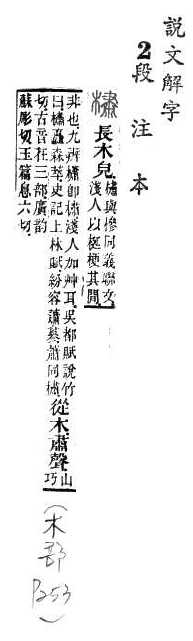 説文解字
2段注本
橚 長木皃 橚與槮同義聯文
淺人以梃梗其閒
非也九辨橚槮淺人加艸耳吳都賦說竹
曰橚矗森萃史記上林賦紛容蕭蔘蕭同橚 從木肅聲 山巧
切古音在三部廣韵
蘇彫切玉篇息六切
(木部
P253)